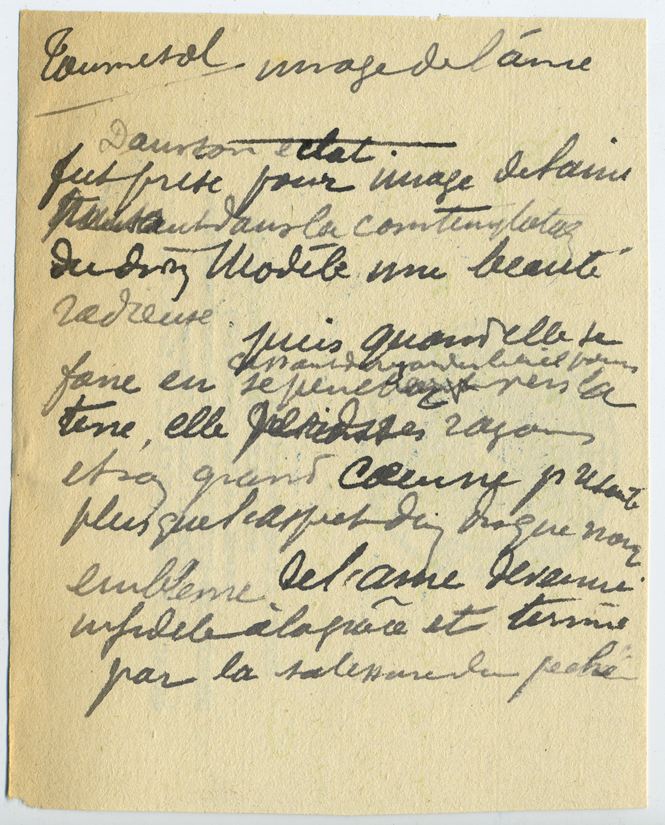 Tournesol image de l'âme
Dans son éclat
fut prise pour image de l'âme
puisant dans la contemplation
du divin Modèle une beauté
radieuse
puis quand elle se
cessant de regarder le ciel pour
fane en se penchant vers la
terre, elle perd ses rayons
et son grand cœur ne présente
plus que l'aspect d'un disque noir
emblème de l'âme devenue
infidèle à la grâce et ternie
par la salissure du péché